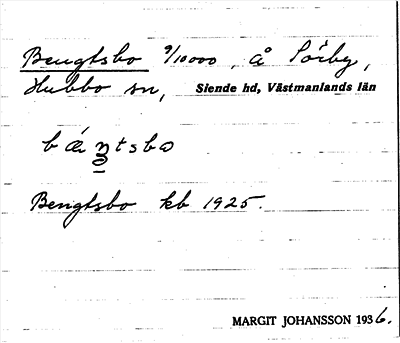 Bengtsbo 9/10000, å Sörby,
Hubbo sn, Siende hd, Västmanlands län
Bengtsbo kb 1925.
MARGIT JOHANSSON 1936.